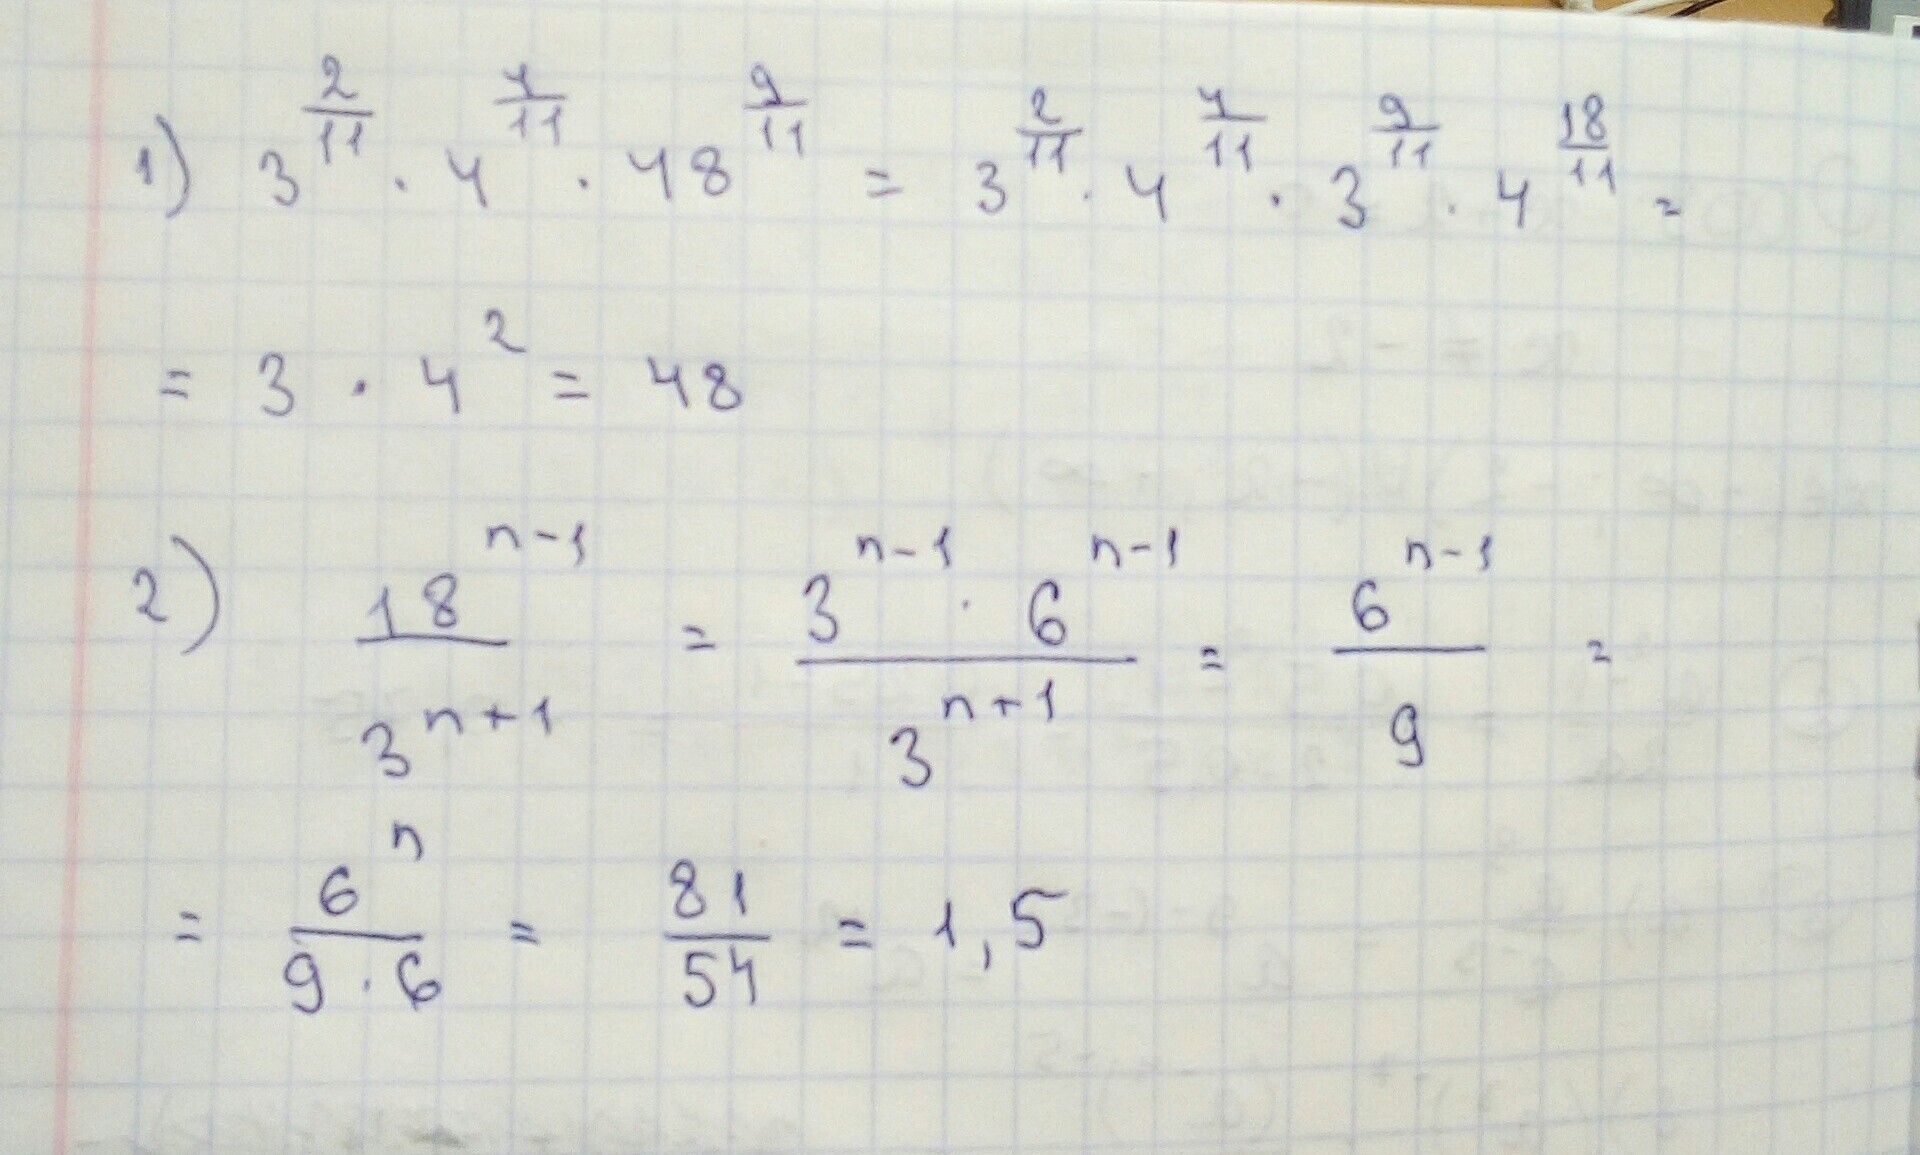 1) 3^(2/11) · 4^(4/11) · 48^(9/11) = 3^(2/11) · 4^(4/11) · 3^(9/11) · 4^(18/11) =
= 3 · 4^2 = 48
2) 18^(n-1) / 3^(n+1) = 3^(n-1) · 6^(n-1) / 3^(n+1) = 6^(n-1) / 9 =
= 6^n / 9·6 = 81/54 = 1,5